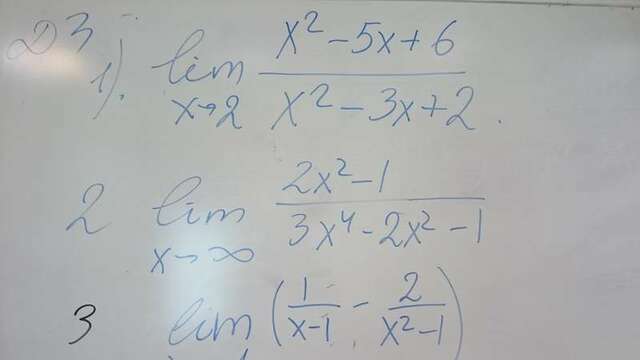 ДЗ
1). lim x→2 (x²-5x+6)/(x²-3x+2).
2 lim x→∞ (2x²-1)/(3x⁴-2x²-1)
3 lim (1/(x-1) - 2/(x²-1))